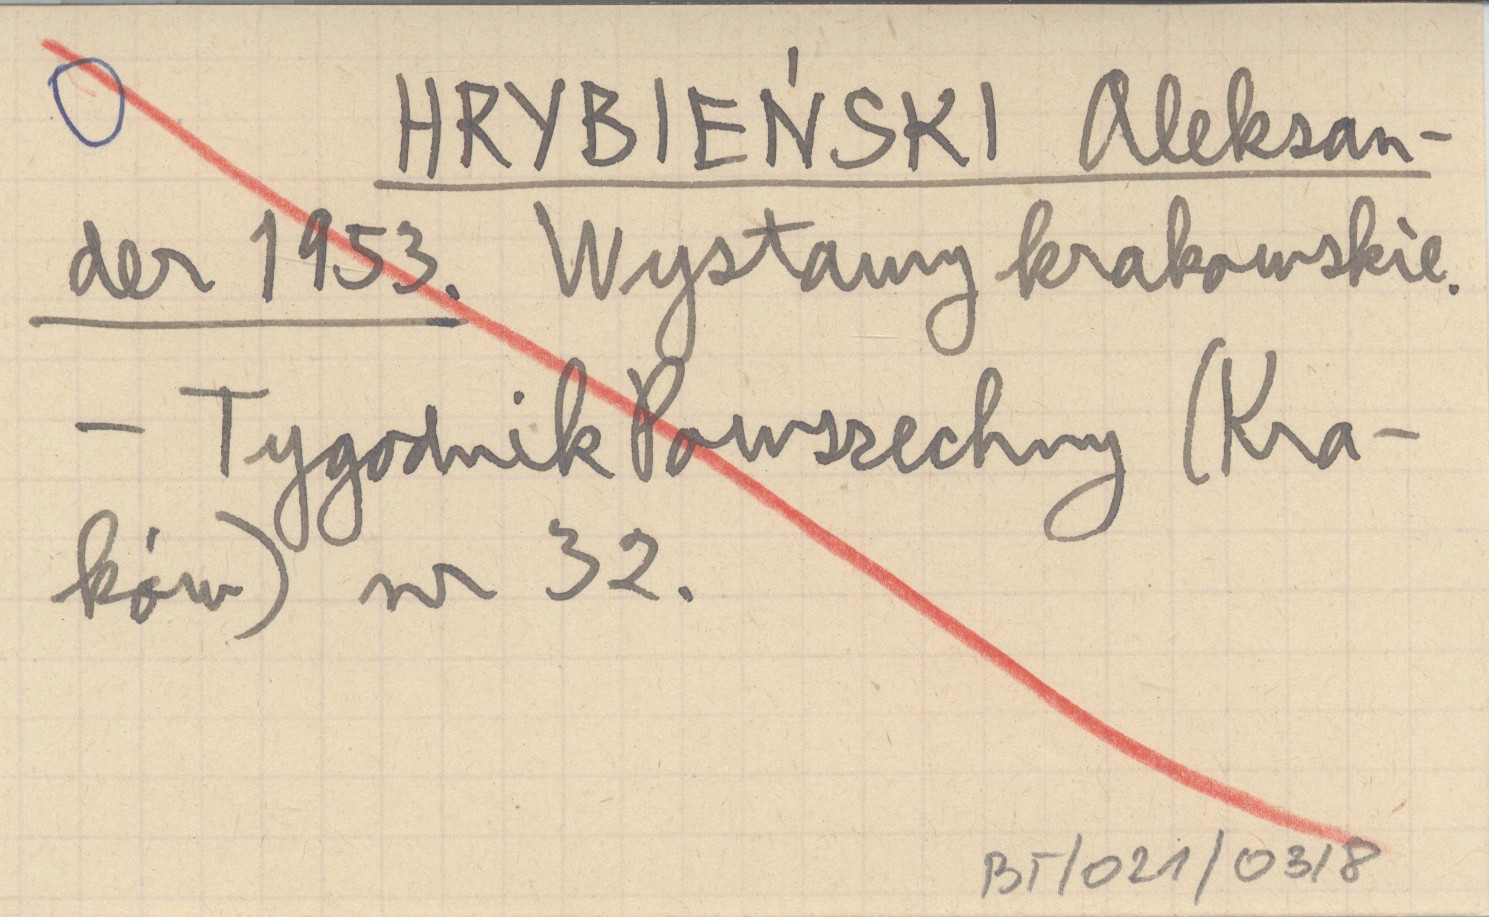 HRYBIEŃSKI Aleksan-
der 1953. Wystawy krakowskie.
- Tygodnik Powszechny (Kra-
ków) nr 32.
BT/021/03/8